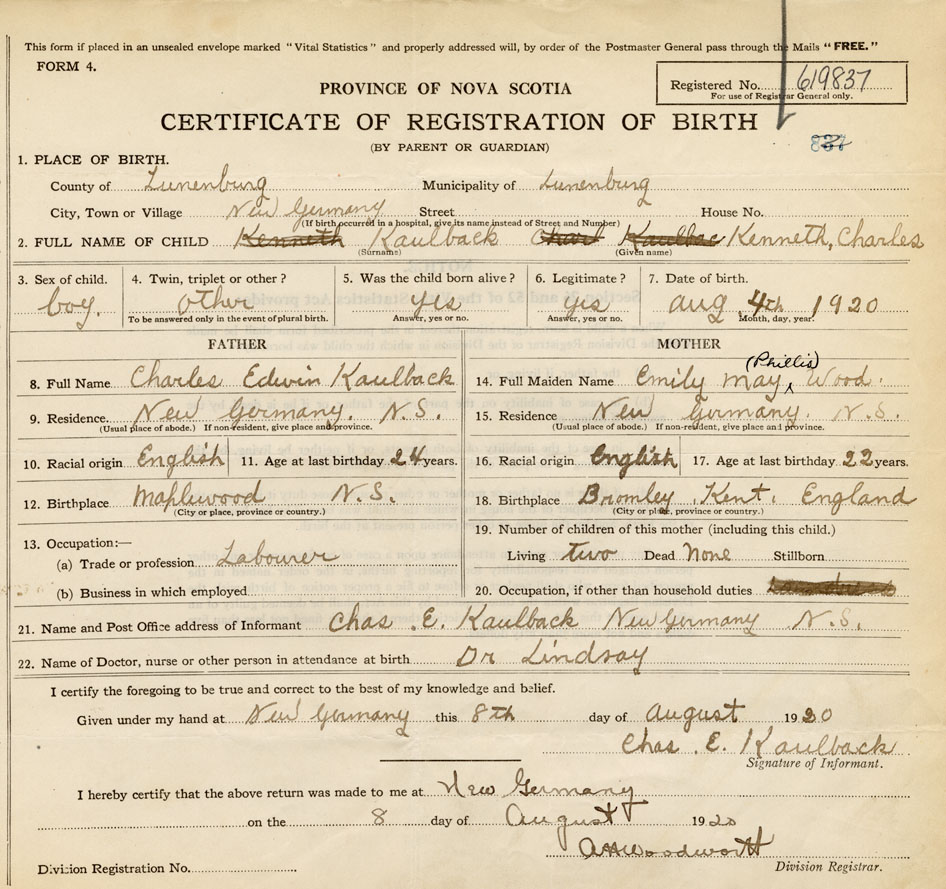 This form if placed in an unsealed envelope marked "Vital Statistics" and properly addressed will, by order of the Postmaster General pass through the Mails "FREE."
FORM 4.
Registered No. 619837
For use of Registrar General only.
PROVINCE OF NOVA SCOTIA
CERTIFICATE OF REGISTRATION OF BIRTH
(BY PARENT OR GUARDIAN)
1. PLACE OF BIRTH.
County of Lunenburg Municipality of Lunenburg
City, Town or Village New Germany Street House No.
(If birth occurred in a hospital, give its name instead of Street and Number)
2. FULL NAME OF CHILD Kenneth Kaulback Charl Kaulbac Kenneth, Charles
(Surname) (Given name)
3. Sex of child. 4. Twin, triplet or other? 5. Was the child born alive? 6. Legitimate? 7. Date of birth.
boy. other yes yes aug 4th 1920
To be answered only in the event of plural birth. Answer, yes or no. Answer, yes or no. Month, day, year.
FATHER MOTHER
(Phillis)
8. Full Name Charles Edwin Kaulback 14. Full Maiden Name Emily May Wood.
9. Residence. New Germany. N.S. 15. Residence New Germany. N.S.
(Usual place of abode.) If non-resident, give place and province. (Usual place of abode.) If non-resident, give place and province.
10. Racial origin English 11. Age at last birthday 24 years. 16. Racial origin English 17. Age at last birthday 22 years.
12. Birthplace Maplewood N.S. 18. Birthplace Bromley, Kent. England
(City or place, province or country.) (City or place, province or country.)
13. Occupation:— 19. Number of children of this mother (including this child.)
(a) Trade or profession Labourer Living two Dead None Stillborn
(b) Business in which employed 20. Occupation, if other than household duties
21. Name and Post Office address of Informant Chas. E. Kaulback New Germany N.S.
22. Name of Doctor, nurse or other person in attendance at birth Dr Lindsay
I certify the foregoing to be true and correct to the best of my knowledge and belief.
Given under my hand at New Germany this 8th day of August 1920
Chas. E. Kaulback
Signature of Informant.
I hereby certify that the above return was made to me at New Germany
on the 8 day of August 1920
Woodworth
Division Registration No. Division Registrar.